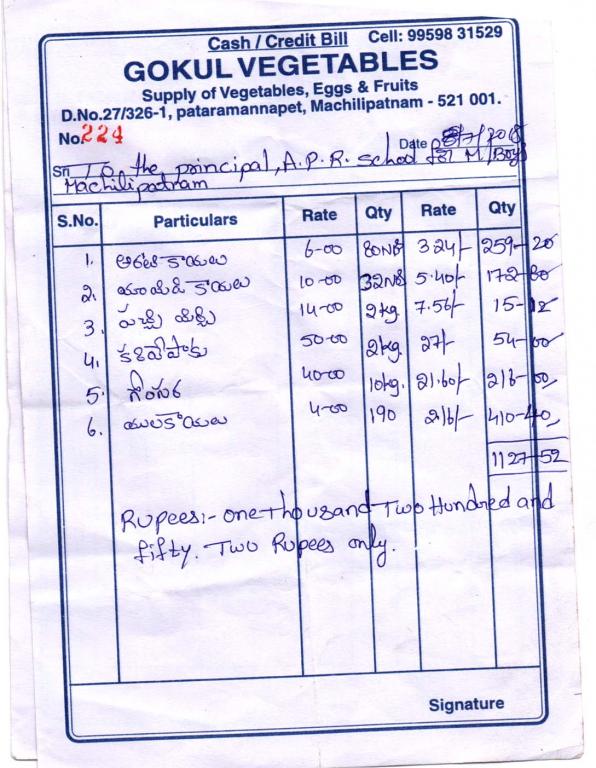 Cash / Credit Bill Cell: 99598 31529
GOKUL VEGETABLES
Supply of Vegetables, Eggs & Fruits
D.No.27/326-1, pataramannapet, Machilipatnam - 521 001.
No. 224
Date
Sri To the principal, A.P.R. school for M/Boys
Machilipatnam
S.No. Particulars Rate Qty Rate Qty
1. అరటి కాయలు 6-00 80NB 3.24/- 259-20
2. మామిడి కాయలు 10-00 32NB 5.40/- 172-80
3. పచ్చి మిర్చి 14-00 2kg 7.56/- 15-12
4. కరివేపాకు 50-00 2kg. 27/- 54-00
5. గోంగూర 40-00 10kg. 21.60/- 216-00
6. 4-00 190 2.16/- 410-40
1127-52
Rupees:- one thousand Two Hundred and
fifty. Two Rupees only.
Signature